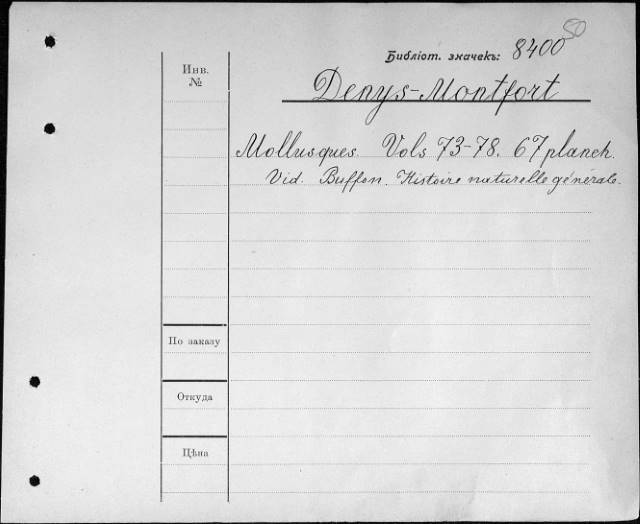 50
Библіот. значекъ: 8400
Инв.
№
Denys-Montfort
Mollusques. Vols 73-78. 67 planch.
Vid. Buffon. Histoire naturelle générale.
По заказу
Откуда
Цѣна